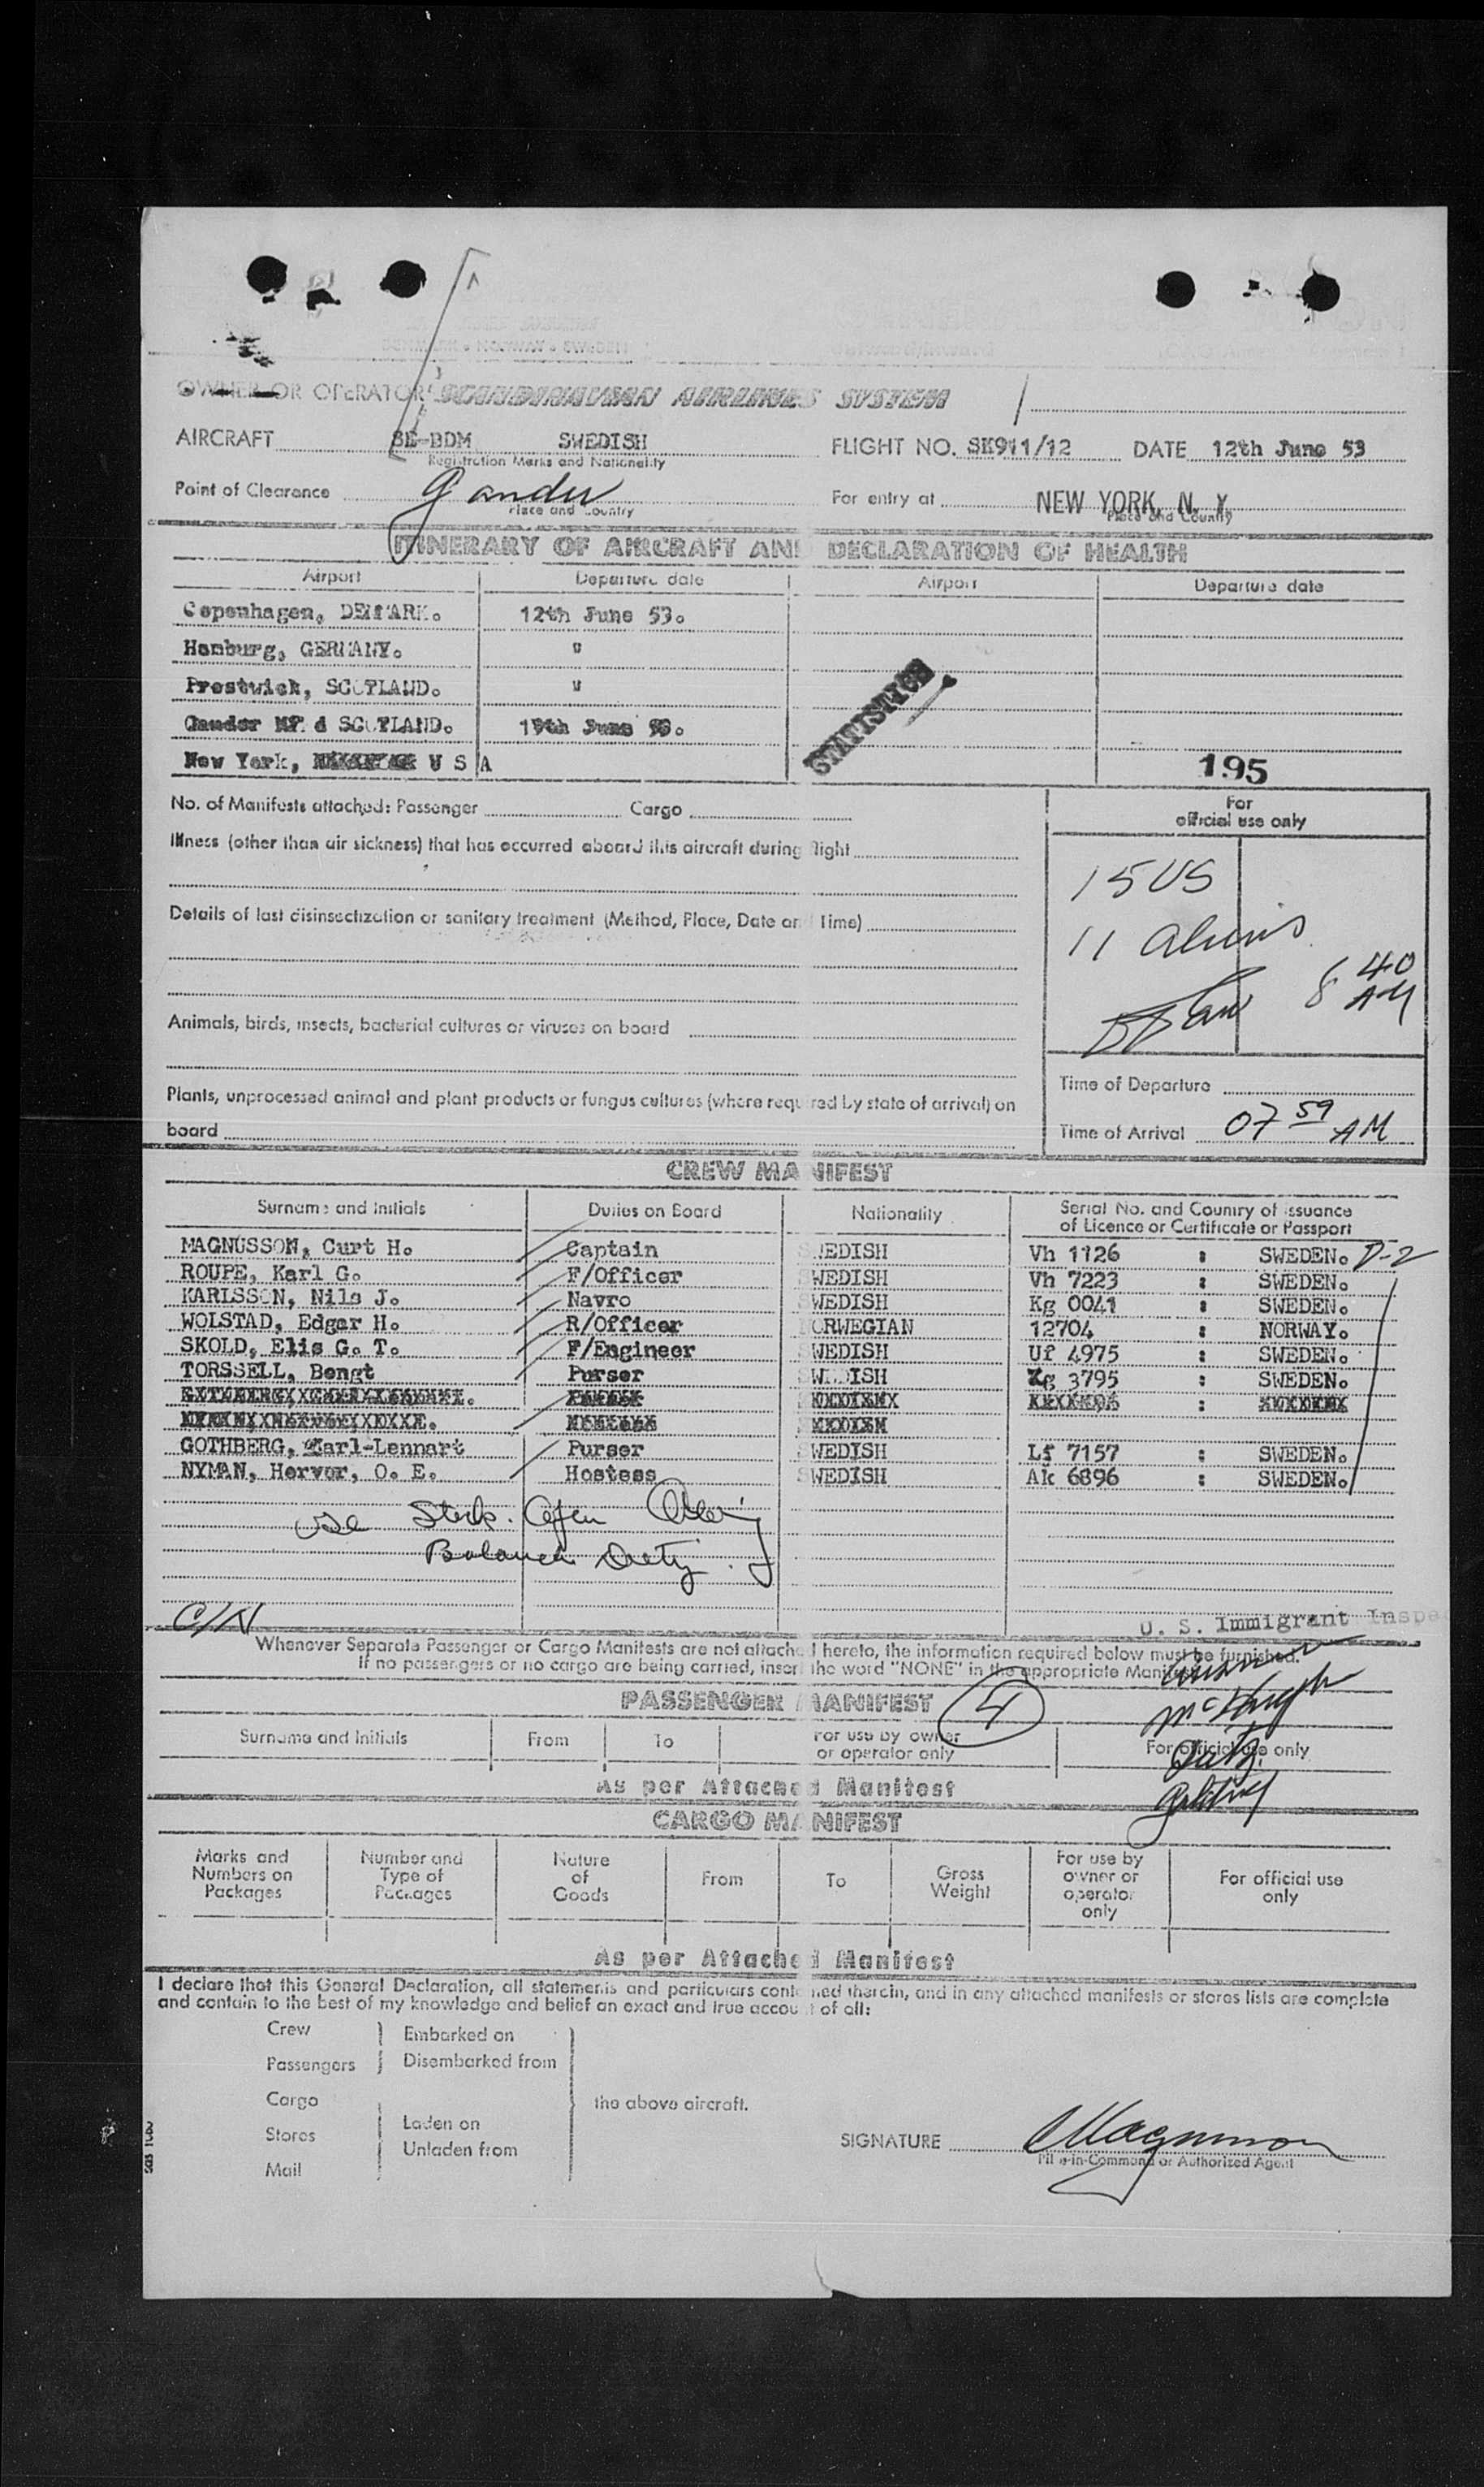 OWNER OR OPERATOR SCANDINAVIAN AIRLINES SYSTEM
AIRCRAFT SE-BDM SWEDISH FLIGHT NO. SK911/12 DATE 12th June 53
Registration Marks and Nationality
Point of Clearance Gander For entry at NEW YORK, N. Y.
Place and Country Place and Country
ITINERARY OF AIRCRAFT AND DECLARATION OF HEALTH
Airport Departure date Airport Departure date
Copenhagen, DENMARK. 12th June 53.
Hamburg, GERMANY. "
Prestwick, SCOTLAND. "
Gander SCOTLAND. June
STATISTICS
New York, U S A
195
No. of Manifests attached: Passenger Cargo
For
official use only
Illness (other than air sickness) that has occurred aboard this aircraft during flight
15 US
Details of last disinsectization or sanitary treatment (Method, Place, Date and Time)
11 aliens
8 40 AM
Animals, birds, insects, bacterial cultures or viruses on board
Time of Departure
Plants, unprocessed animal and plant products or fungus cultures (where required by state of arrival) on
board
Time of Arrival 07 59 AM
CREW MANIFEST
Surname and Initials Duties on Board Nationality Serial No. and Country of Issuance
of Licence or Certificate or Passport
MAGNUSSON, Curt H. Captain SWEDISH Vh 1126 : SWEDEN. D-2
ROUPE, Karl G. F/Officer SWEDISH Vh 7223 : SWEDEN.
KARLSSON, Nils J. Navro SWEDISH Kg 0041 : SWEDEN.
WOLSTAD, Edgar H. R/Officer NORWEGIAN 12704 : NORWAY.
SKOLD, Elis G. T. F/Engineer SWEDISH Uf 4975 : SWEDEN.
TORSSELL, Bengt Purser SWEDISH Kg 3795 : SWEDEN.
GOTHBERG, Karl-Lennart Purser SWEDISH Lf 7157 : SWEDEN.
NYMAN, Hervor, O. E. Hostess SWEDISH Ak 6896 : SWEDEN.
Use
Balance Duty.
C/N
U. S. Immigrant Inspe
Whenever Separate Passenger or Cargo Manifests are not attached hereto, the information required below must be furnished.
If no passengers or no cargo are being carried, insert the word "NONE" in the appropriate Manifest.
PASSENGER MANIFEST
4
Surname and Initials From To For use by owner
or operator only For official use only
As per Attached Manifest
CARGO MANIFEST
Marks and
Numbers on
Packages
Number and
Type of
Packages
Nature
of
Goods
From
To
Gross
Weight
For use by
owner or
operator
only
For official use
only
As per Attached Manifest
I declare that this General Declaration, all statements and particulars contained therein, and in any attached manifests or stores lists are complete
and contain to the best of my knowledge and belief an exact and true account of all:
Crew Embarked on
Passengers Disembarked from
Cargo the above aircraft.
Stores Laden on
Unladen from
Mail
SIGNATURE CMagnusson
Pilot-in-Command or Authorized Agent